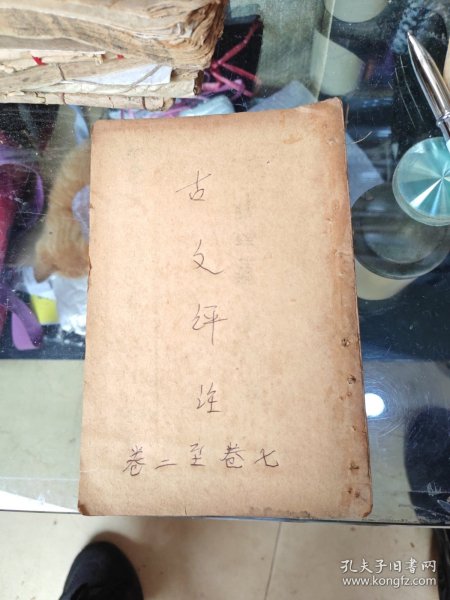 古文评注
卷二至卷七
孔夫子旧书网
www.kongfz.com